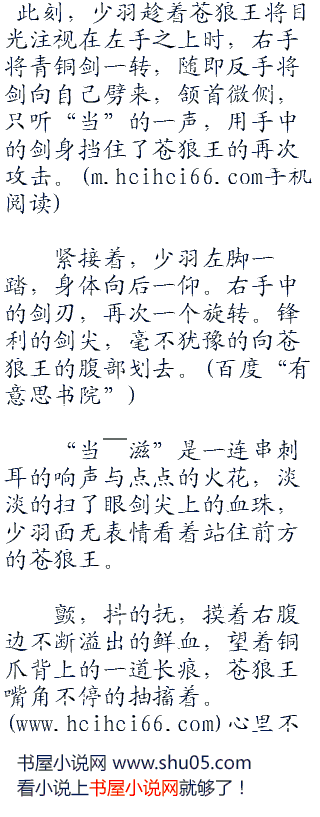 此刻，少羽趁着苍狼王将目
光注视在左手之上时，右手
将青铜剑一转，随即反手将
剑向自己劈来，颔首微侧，
只听“当”的一声，用手中
的剑身挡住了苍狼王的再次
攻击。(m.hcihci66.com手机
阅读)
紧接着，少羽左脚一
踏，身体向后一仰。右手中
的剑刃，再次一个旋转。锋
利的剑尖，毫不犹豫的向苍
狼王的腹部划去。(百度“有
意思书院”)
“当——滋”是一连串刺
耳的响声与点点的火花，淡
淡的扫了眼剑尖上的血珠，
少羽面无表情看着站住前方
的苍狼王。
颤，抖的抚，摸着右腹
边不断溢出的鲜血，望着铜
爪背上的一道长痕，苍狼王
嘴角不停的抽搐着。
(www.hcihci66.com)心里不
书屋小说网 www.shu05.com
看小说上书屋小说网就够了！